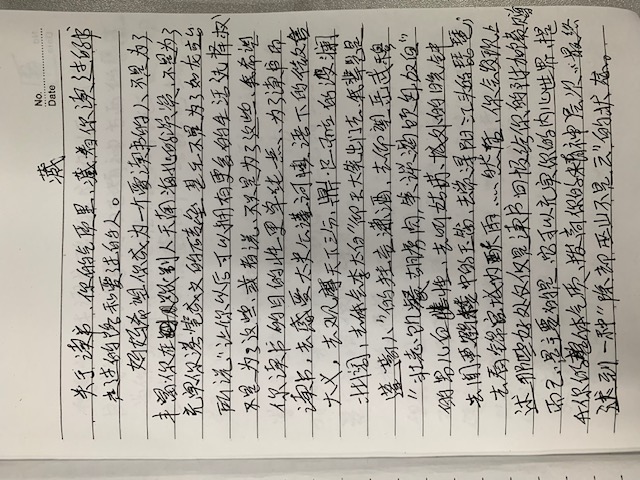 No.
Date
藏
关于读书，你的气质里，藏着你读过的书
走过的路和爱过的人。
妈妈希望你成为一个爱读书的人，不是为了
丰富你在别人天南海北的谈资，不是为了
充实你落笔成文的，甚至不是为了如龙应台
所说“让你以后可以拥有更多的生活选择权”
不是为了这些，或者说，不只是为了这些，我希望
你读书的目的性更单纯点，为了读书而
读书，去感受太史公谨河慎语下的微言
大义，去观摩天下三分，鼎足而立的波澜
壮阔，去体会李太白“仰天大笑出门去，我辈岂是
蓬蒿人”的狂妄潇洒，去仰望岳武穆
“壮志饥餐胡虏肉，笑谈渴饮匈奴血”
的男儿血性，去听姑苏城外的晚钟
去闻中的玉笛，去赏浔阳江头的琵琶，
去看锦官城的雨……然后，你会发现上
述那些好处仅仅是读书回报给你的附加馈赠
而已，最主要的是，它可以充实你的内心世界，提
升你的整体气质，拔高你的精神层次，最终
达到一种“除却巫山不是云”的状态。